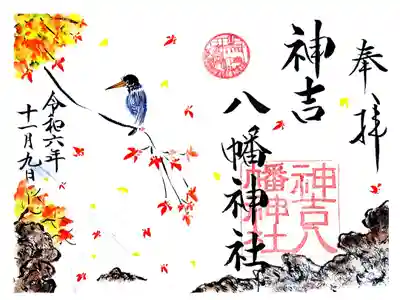 奉拝
神吉
八幡神社
神吉八
幡神社
令和六年
十一月九日